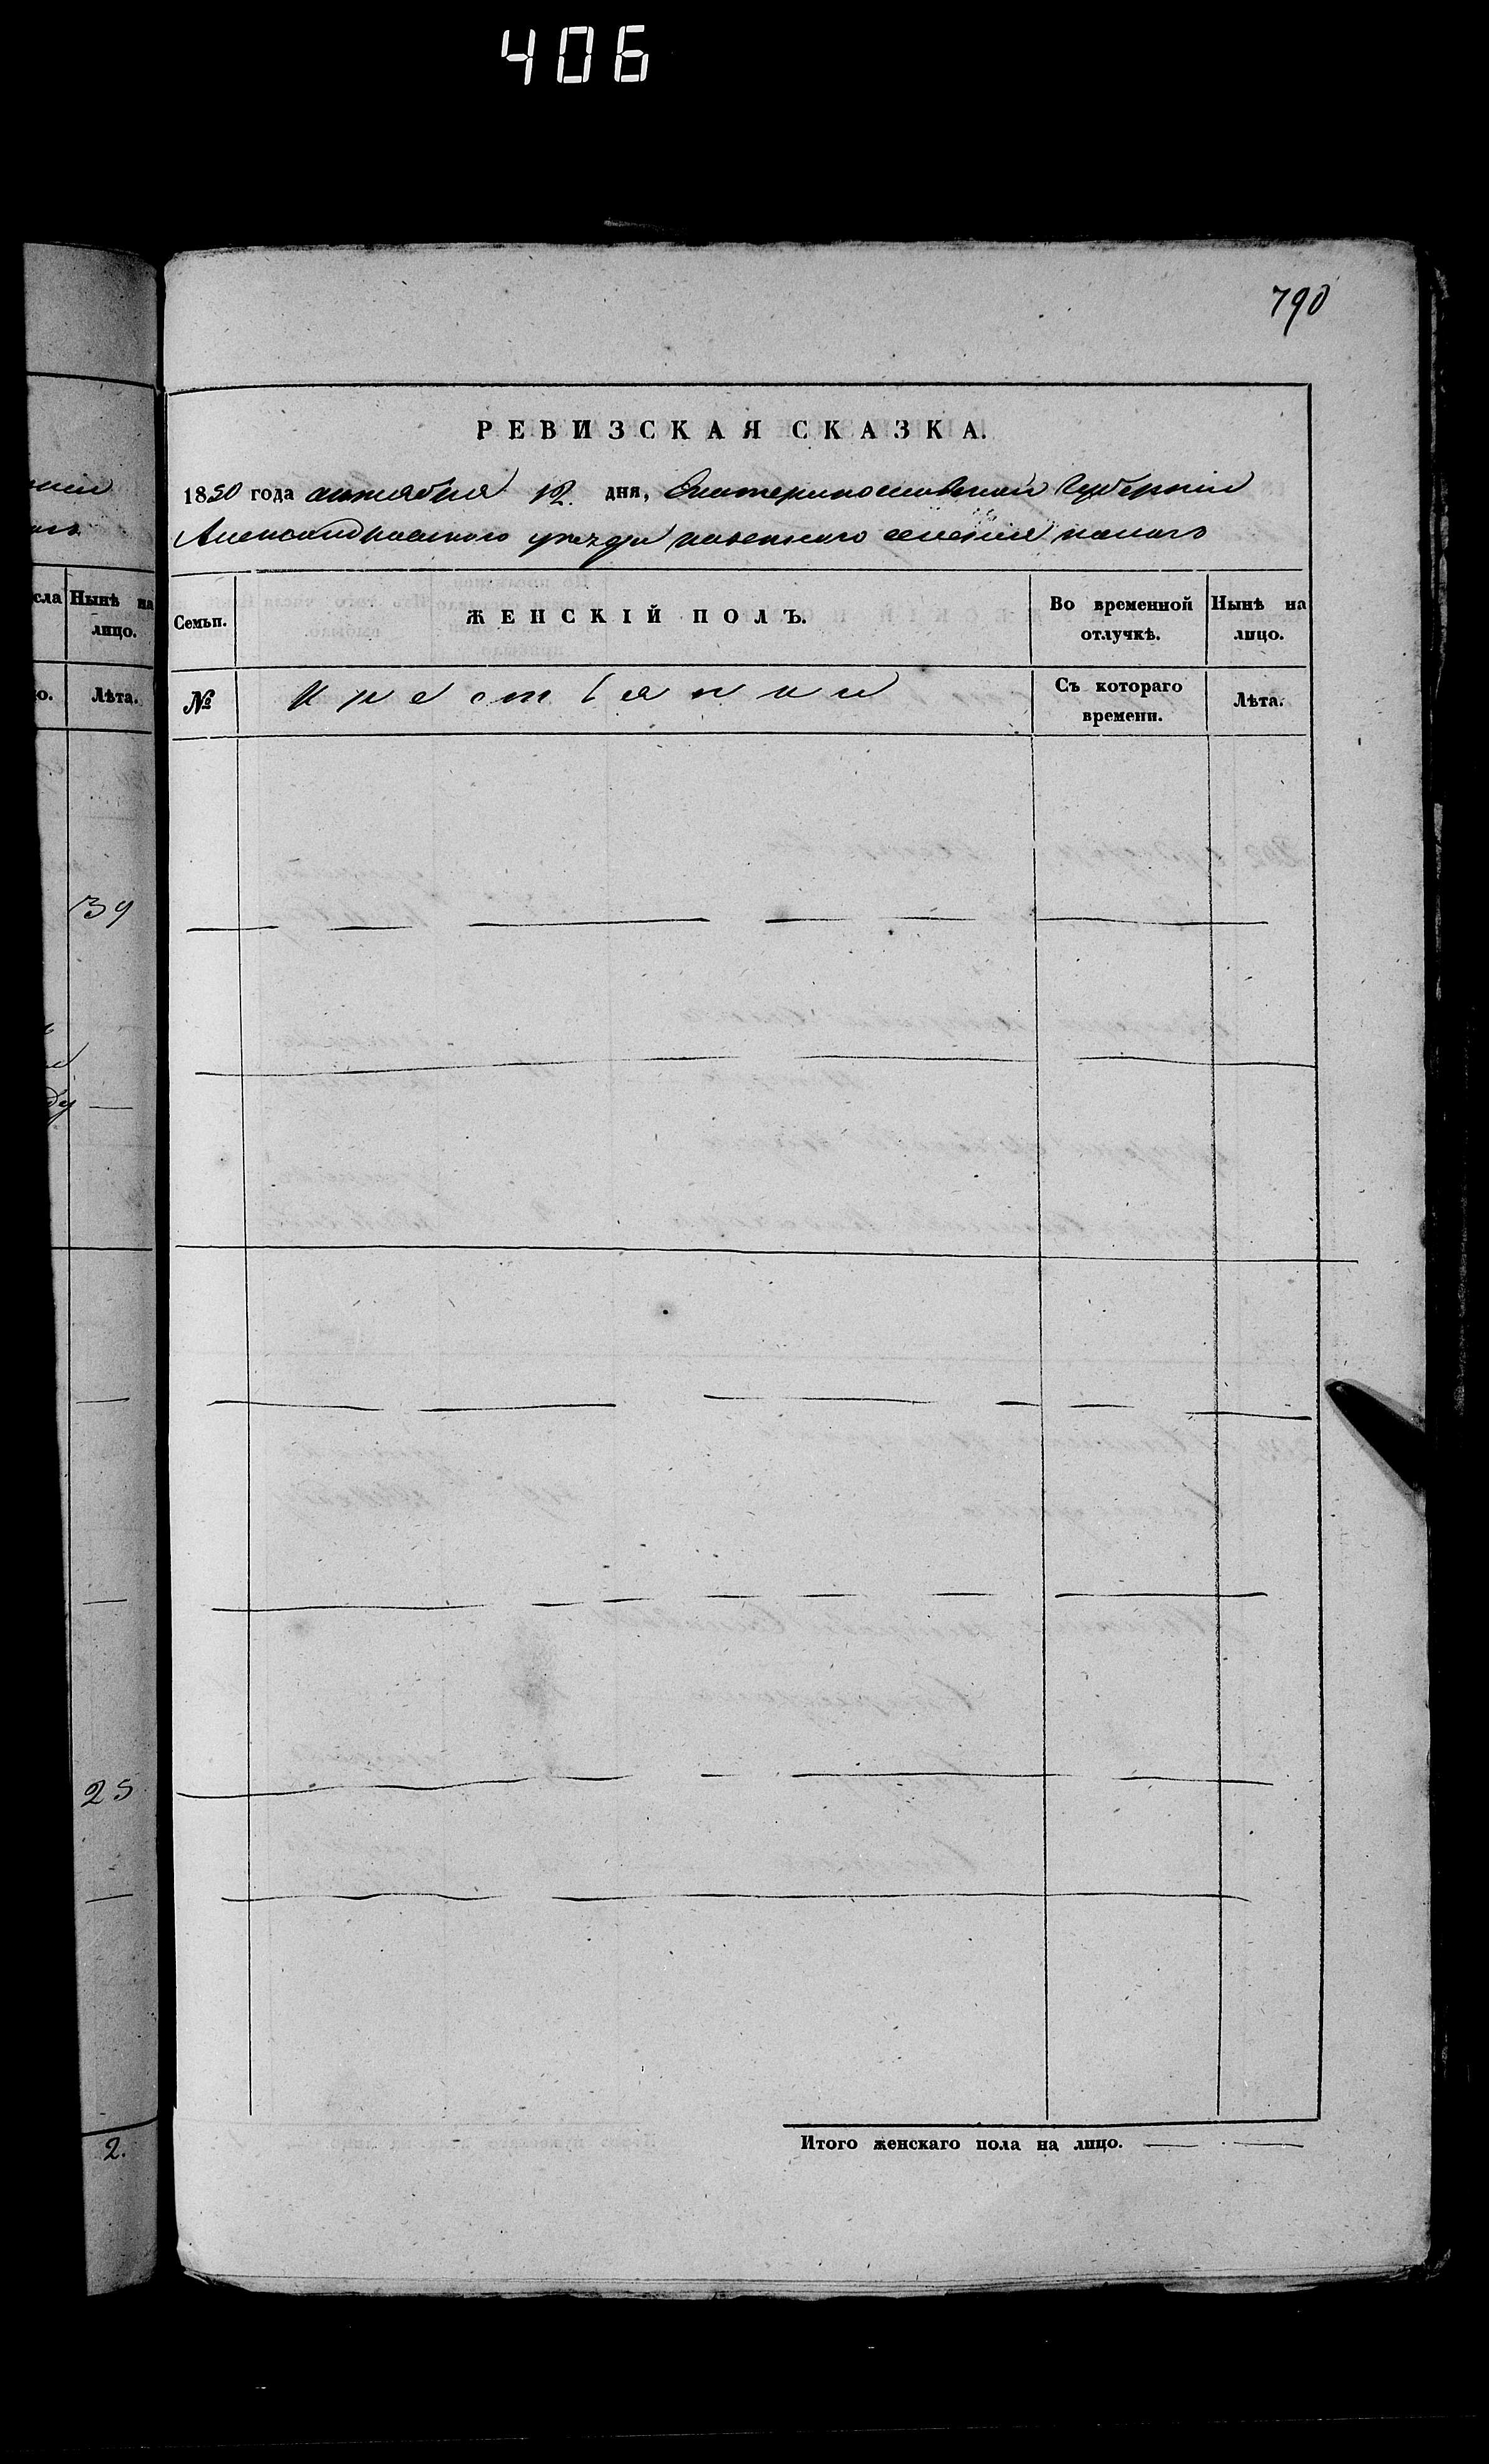 406
790
РЕВИЗСКАЯ СКАЗКА.
1850 года октября 12 дня, Екатеринославской Губернiи
Александровского уезда казенного селения
сла Нынѣ на лицо.
о. Лѣта.
Семьи. ЖЕНСКІЙ ПОЛЪ. Во временной отлучкѣ. Нынѣ на лицо.
№ Крестьянки Съ котораго времени. Лѣта.
39
25
2.
Итого женскаго пола на лицо.